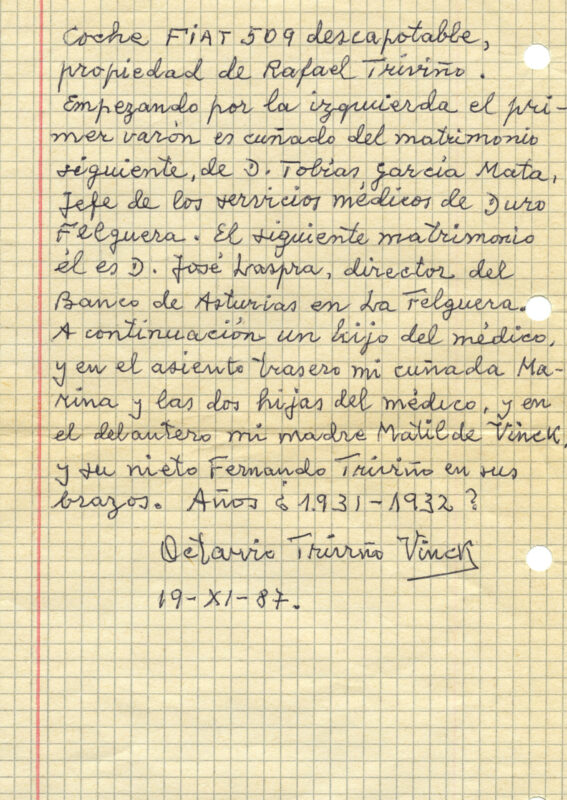 Coche FiAT 509 descapotable,
propiedad de Rafael Triviño.
Empezando por la izquierda el pri-
mer varón es cuñado del matrimonio
siguiente, de D. Tobías García Mata,
Jefe de los servicios médicos de Duro
Felguera. El siguiente matrimonio
él es D. José Laspra, director del
Banco de Asturias en La Felguera.
A continuación un hijo del médico,
y en el asiento trasero mi cuñada Ma-
rina y las dos hijas del médico, y en
el delantero mi madre Matilde Vinck,
y su nieto Fernando Triviño en sus
brazos. Años ¿ 1.931-1932 ?
Octavio Triviño Vinck
19-XI-87.